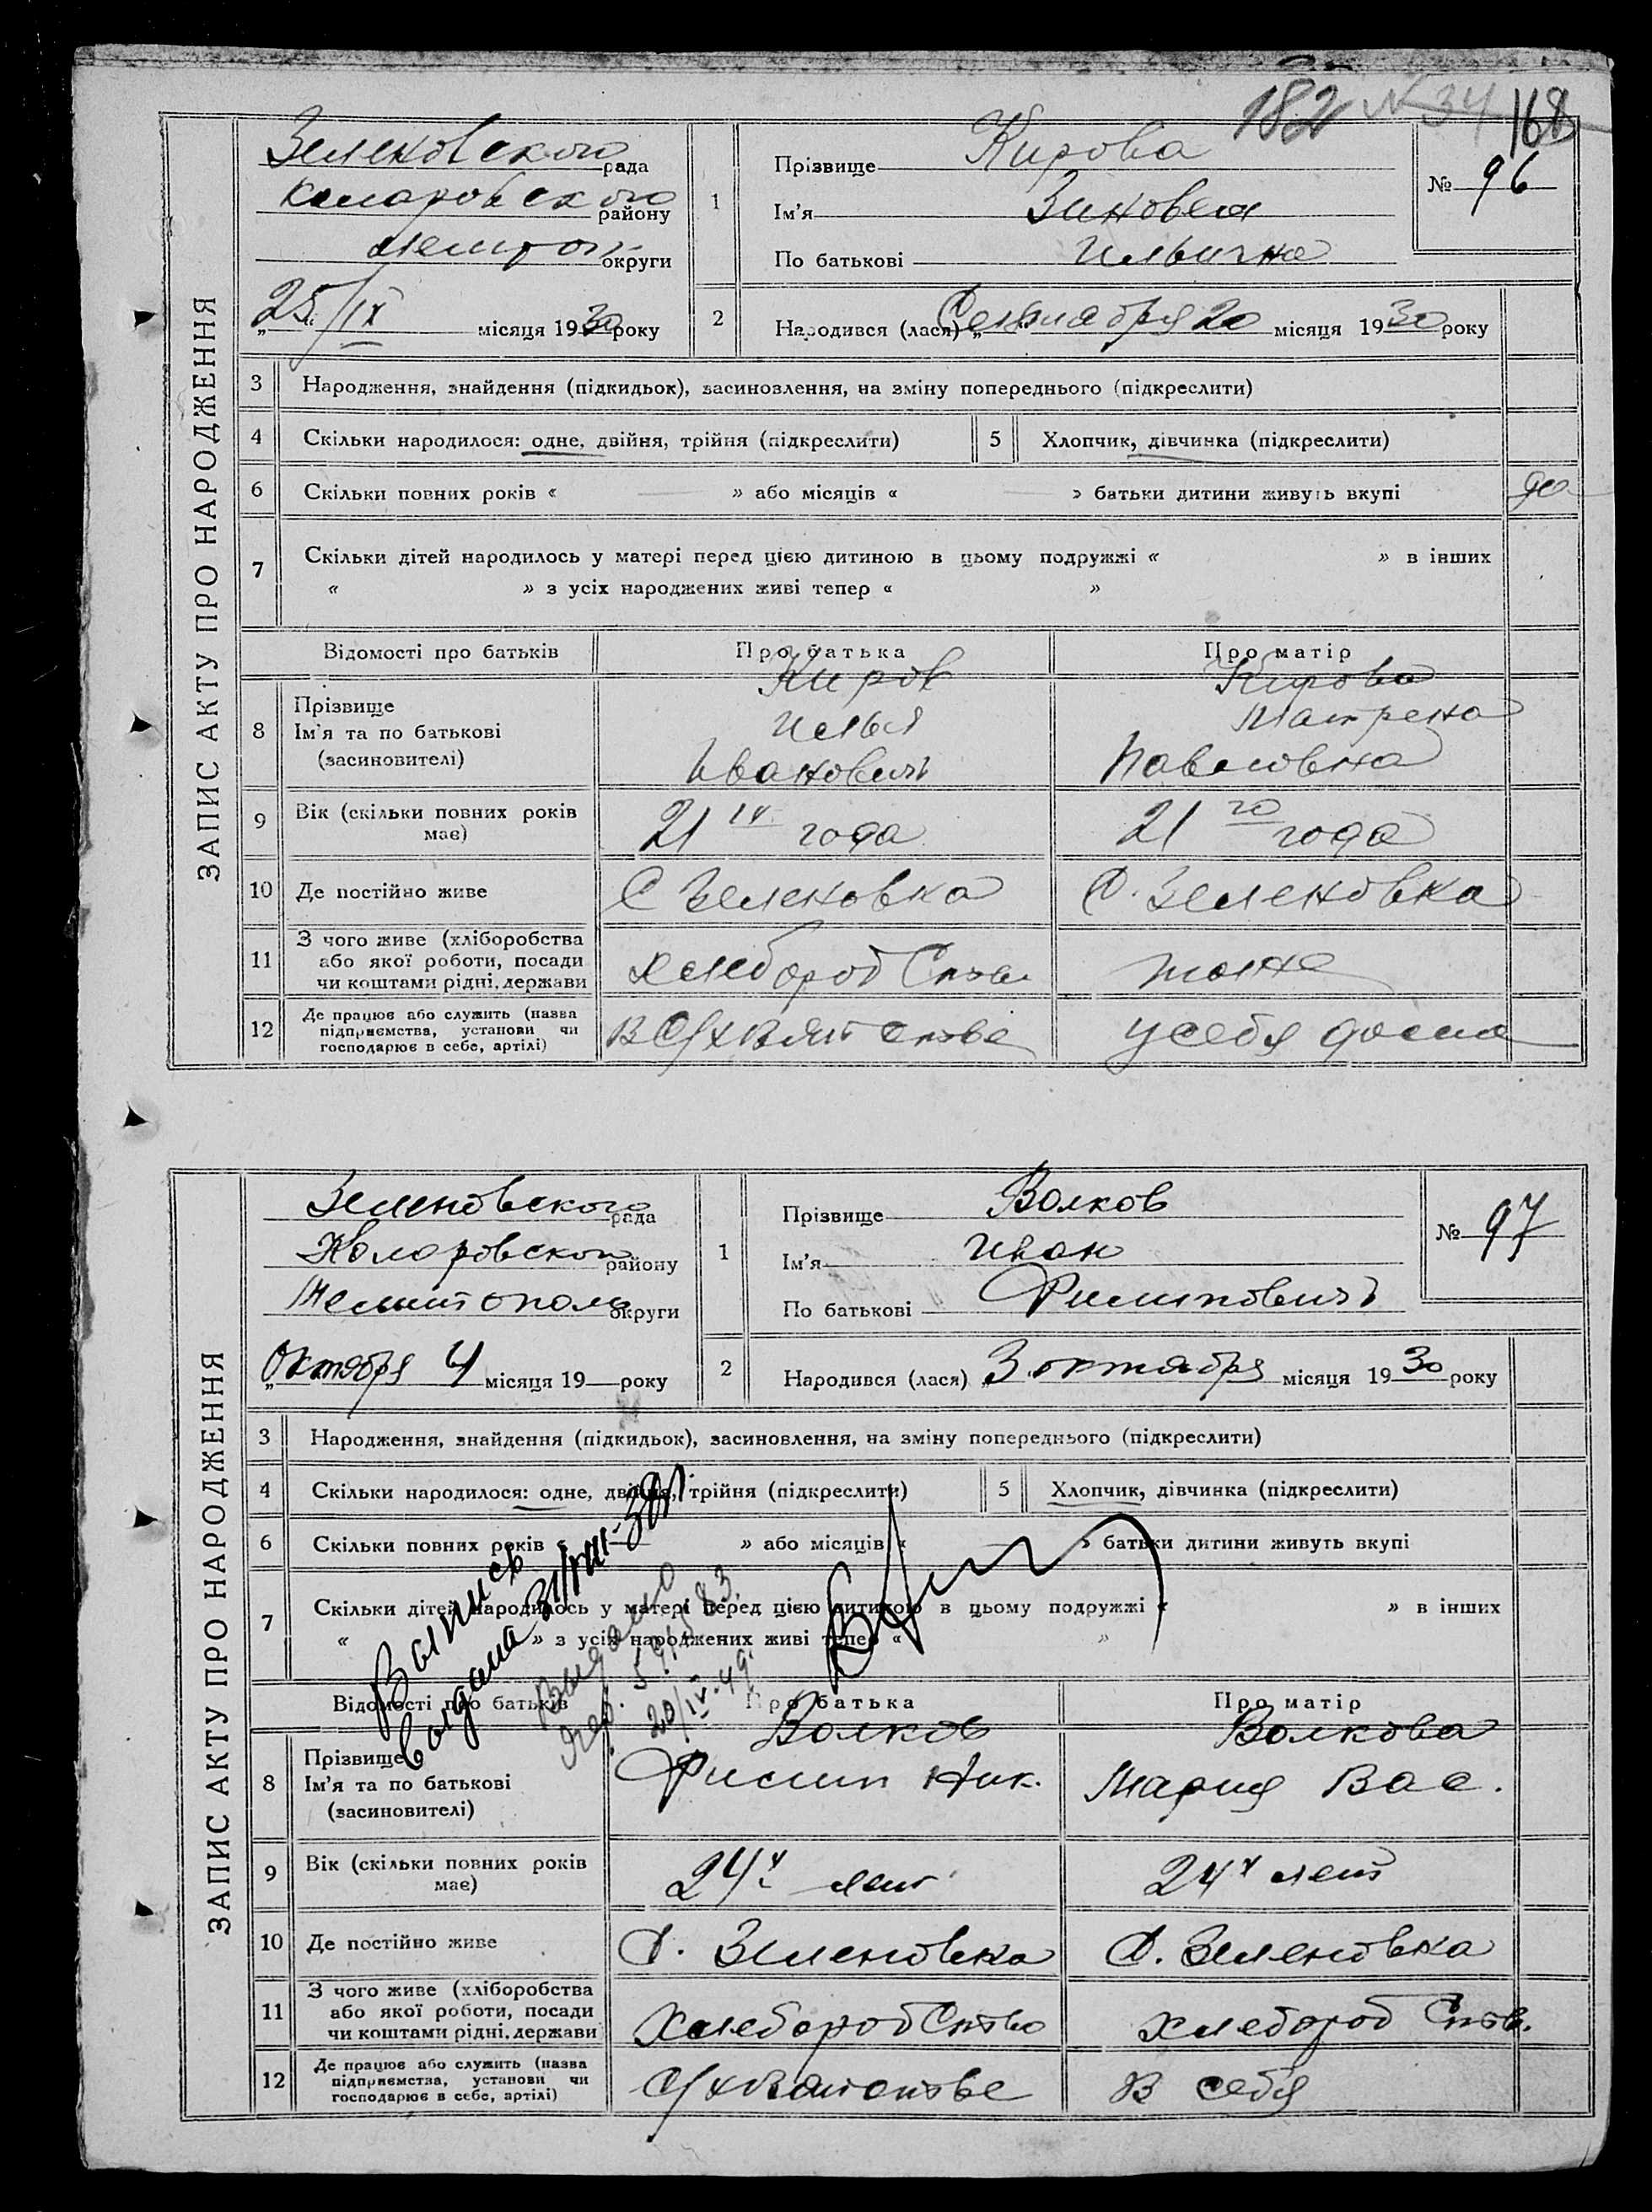 182 № 34 168
ЗАПИС АКТУ ПРО НАРОДЖЕННЯ
Зеленовского рада
Коларовского району
Мелитоп округи
„25/IX місяця 1930 року
1
Прізвище Кирова
Ім'я Зиновея
По батькові Ильична
№ 96
2
Народився (лася) „Сентабря 20 місяця 1930 року
3 Народження, знайдення (підкидьок), засиновлення, на зміну попереднього (підкреслити)
4 Скільки народилося: одне, двійня, трійня (підкреслити) 5 Хлопчик, дівчинка (підкреслити)
6 Скільки повних років « » або місяців « » батьки дитини живуть вкупі
7 Скільки дітей народилось у матері перед цією дитиною в цьому подружжі « » в інших
« » з усіх народжених живі тепер « »
Відомості про батьків Про батька Про матір
8 Прізвище Ім'я та по батькові (засиновителі)
Киров Илья Иванович
Кирова Матрена Павловна
9 Вік (скільки повних років має) 21 года 21 го года
10 Де постійно живе С Зеленовка С. Зеленовка
11 З чого живе (хліборобства або якої роботи, посади чи коштами рідні, держави Хлебород Ства тоже
12 Де працює або служить (назва підприємства, установи чи господарює в себе, артілі) у себя дома
ЗАПИС АКТУ ПРО НАРОДЖЕННЯ
Зеленовского рада
Коларовского району
Мелитополь округи
„Октября 4 місяця 19 року
1
Прізвище Волков
Ім'я Иван
По батькові Филиповичъ
№ 97
2
Народився (лася) „3 октября місяця 1930 року
3 Народження, знайдення (підкидьок), засиновлення, на зміну попереднього (підкреслити)
4 Скільки народилося: одне, двійня, трійня (підкреслити) 5 Хлопчик, дівчинка (підкреслити)
6 Скільки повних років « » або місяців « » батьки дитини живуть вкупі
7 Скільки дітей народилось у матері перед цією дитиною в цьому подружжі « » в інших
« » з усіх народжених живі тепер « »
Выпись
выдана 31/VIII-39
Выдано
20/IV-49.
Відомості про батьків Про батька Про матір
8 Прізвище Ім'я та по батькові (засиновителі)
Волков Филип Ник.
Волкова Мария Вас.
9 Вік (скільки повних років має) 24 х лет 24 х лет
10 Де постійно живе С. Зеленовка С. Зеленовка
11 З чого живе (хліборобства або якої роботи, посади чи коштами рідні, держави Хлебород Ство хлебород Ств.
12 Де працює або служить (назва підприємства, установи чи господарює в себе, артілі) В себя